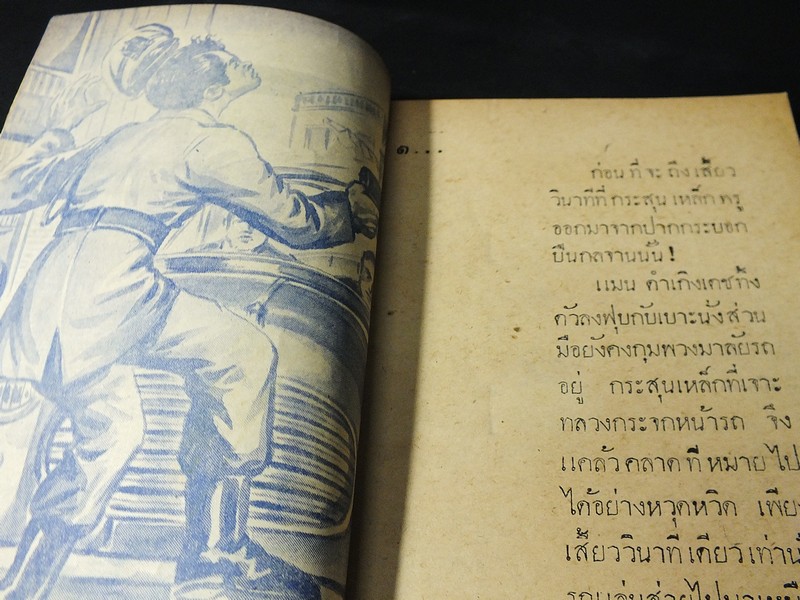 ๑...
ก่อนที่จะถึงเสี้ยว
วินาทีที่กระสุนเหล็กพรู
ออกมาจากปากกระบอก
ปืนกลจานนั้น!
แมน คำเกิงเดชทิ้ง
ตัวลงฟุบกับเบาะนั่งส่วน
มือยังคงกุมพวงมาลัยรถ
อยู่ กระสุนเหล็กที่เจาะ
ทลวงกระจกหน้ารถ จึง
แคล้วคลาดที่หมายไป
ได้อย่างหวุดหวิด
เสี้ยววินาทีเดียว